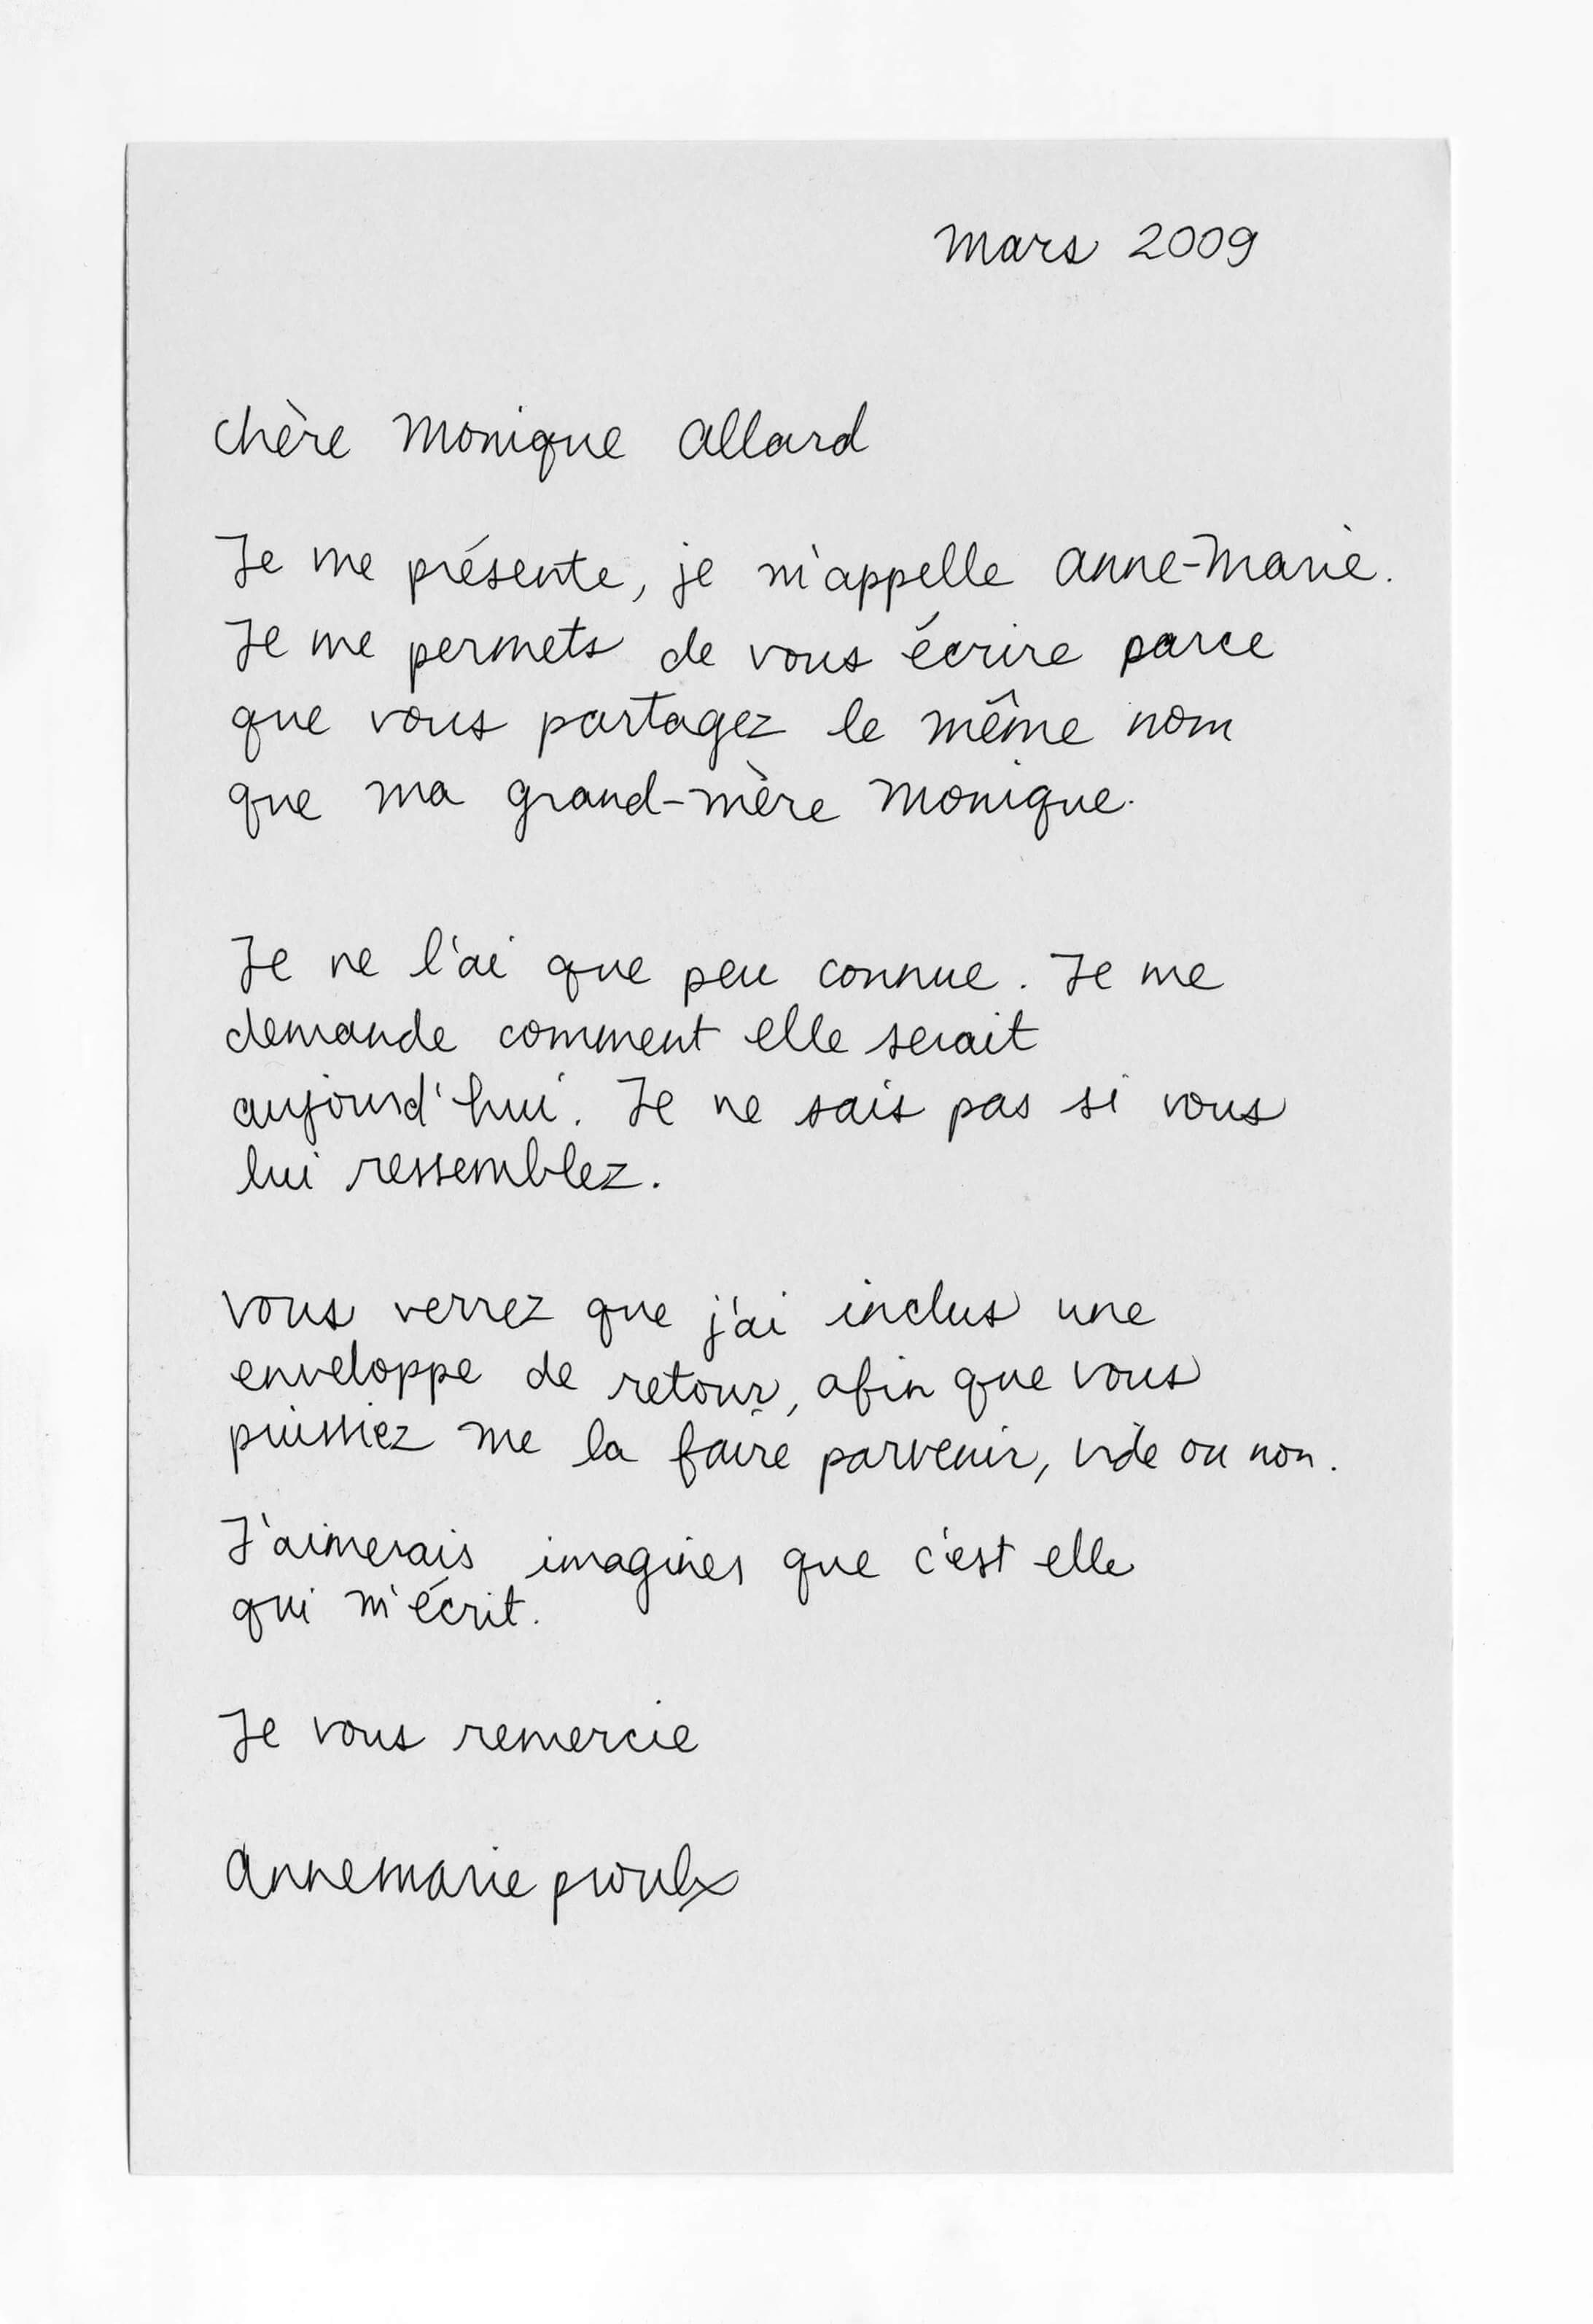 mars 2009
chère Monique Allard
Je me présente, je m'appelle Anne-Marie.
Je me permets de vous écrire parce
que vous partagez le même nom
que ma grand-mère Monique.
Je ne l'ai que peu connue. Je me
demande comment elle serait
aujourd'hui. Je ne sais pas si vous
lui ressemblez.
Vous verrez que j'ai inclus une
enveloppe de retour, afin que vous
puissiez me la faire parvenir, vide ou non.
J'aimerais imaginer que c'est elle
qui m'écrit.
Je vous remercie
Annemarie proulx